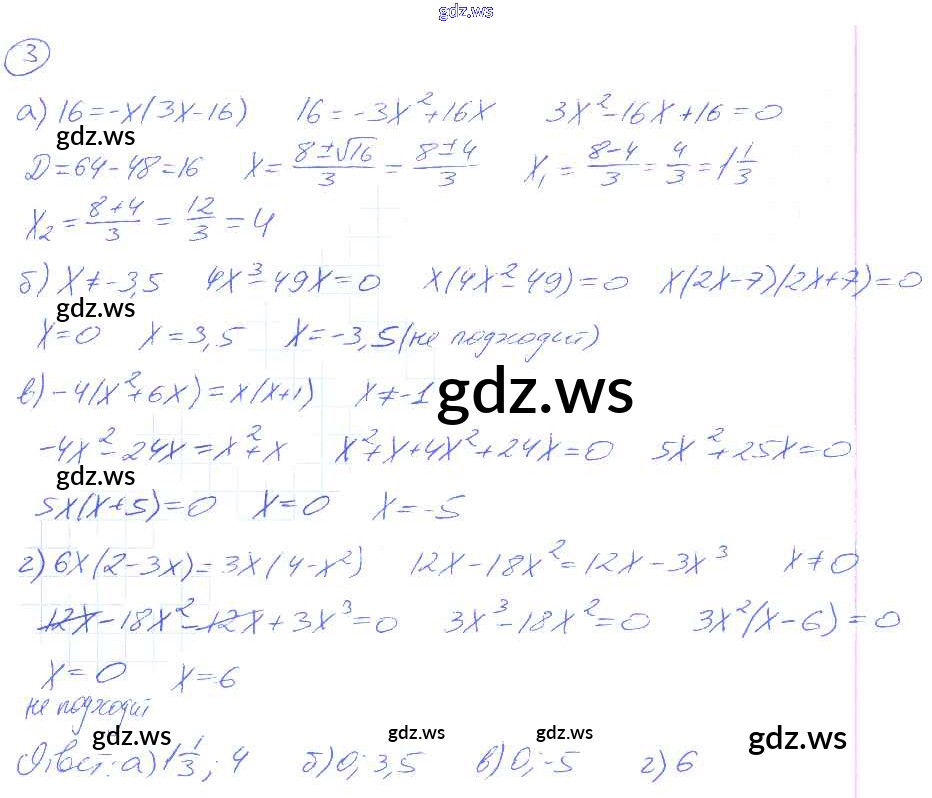 gdz.ws
3
а) 16=-x(3x-16) 16=-3x²+16x 3x²-16x+16=0
gdz.ws
D=64-48=16 x=(8±√16)/3=(8±4)/3 x₁=(8-4)/3=4/3=1 1/3
x₂=(8+4)/3=12/3=4
б) x≠-3,5 4x³-49x=0 x(4x²-49)=0 x(2x-7)(2x+7)=0
gdz.ws
x=0 x=3,5 x=-3,5(не подходит)
в) -4(x²+6x)=x(x+1) x≠-1
gdz.ws
-4x²-24x=x²+x x²+x+4x²+24x=0 5x²+25x=0
gdz.ws
5x(x+5)=0 x=0 x=-5
г) 6x(2-3x)=3x(4-x²) 12x-18x²=12x-3x³ x≠0
12x-18x²-12x+3x³=0 3x³-18x²=0 3x²(x-6)=0
x=0 x=6
не подходит
gdz.ws gdz.ws gdz.ws gdz.ws
Ответ: а) 1 1/3; 4 б) 0; 3,5 в) 0; -5 г) 6